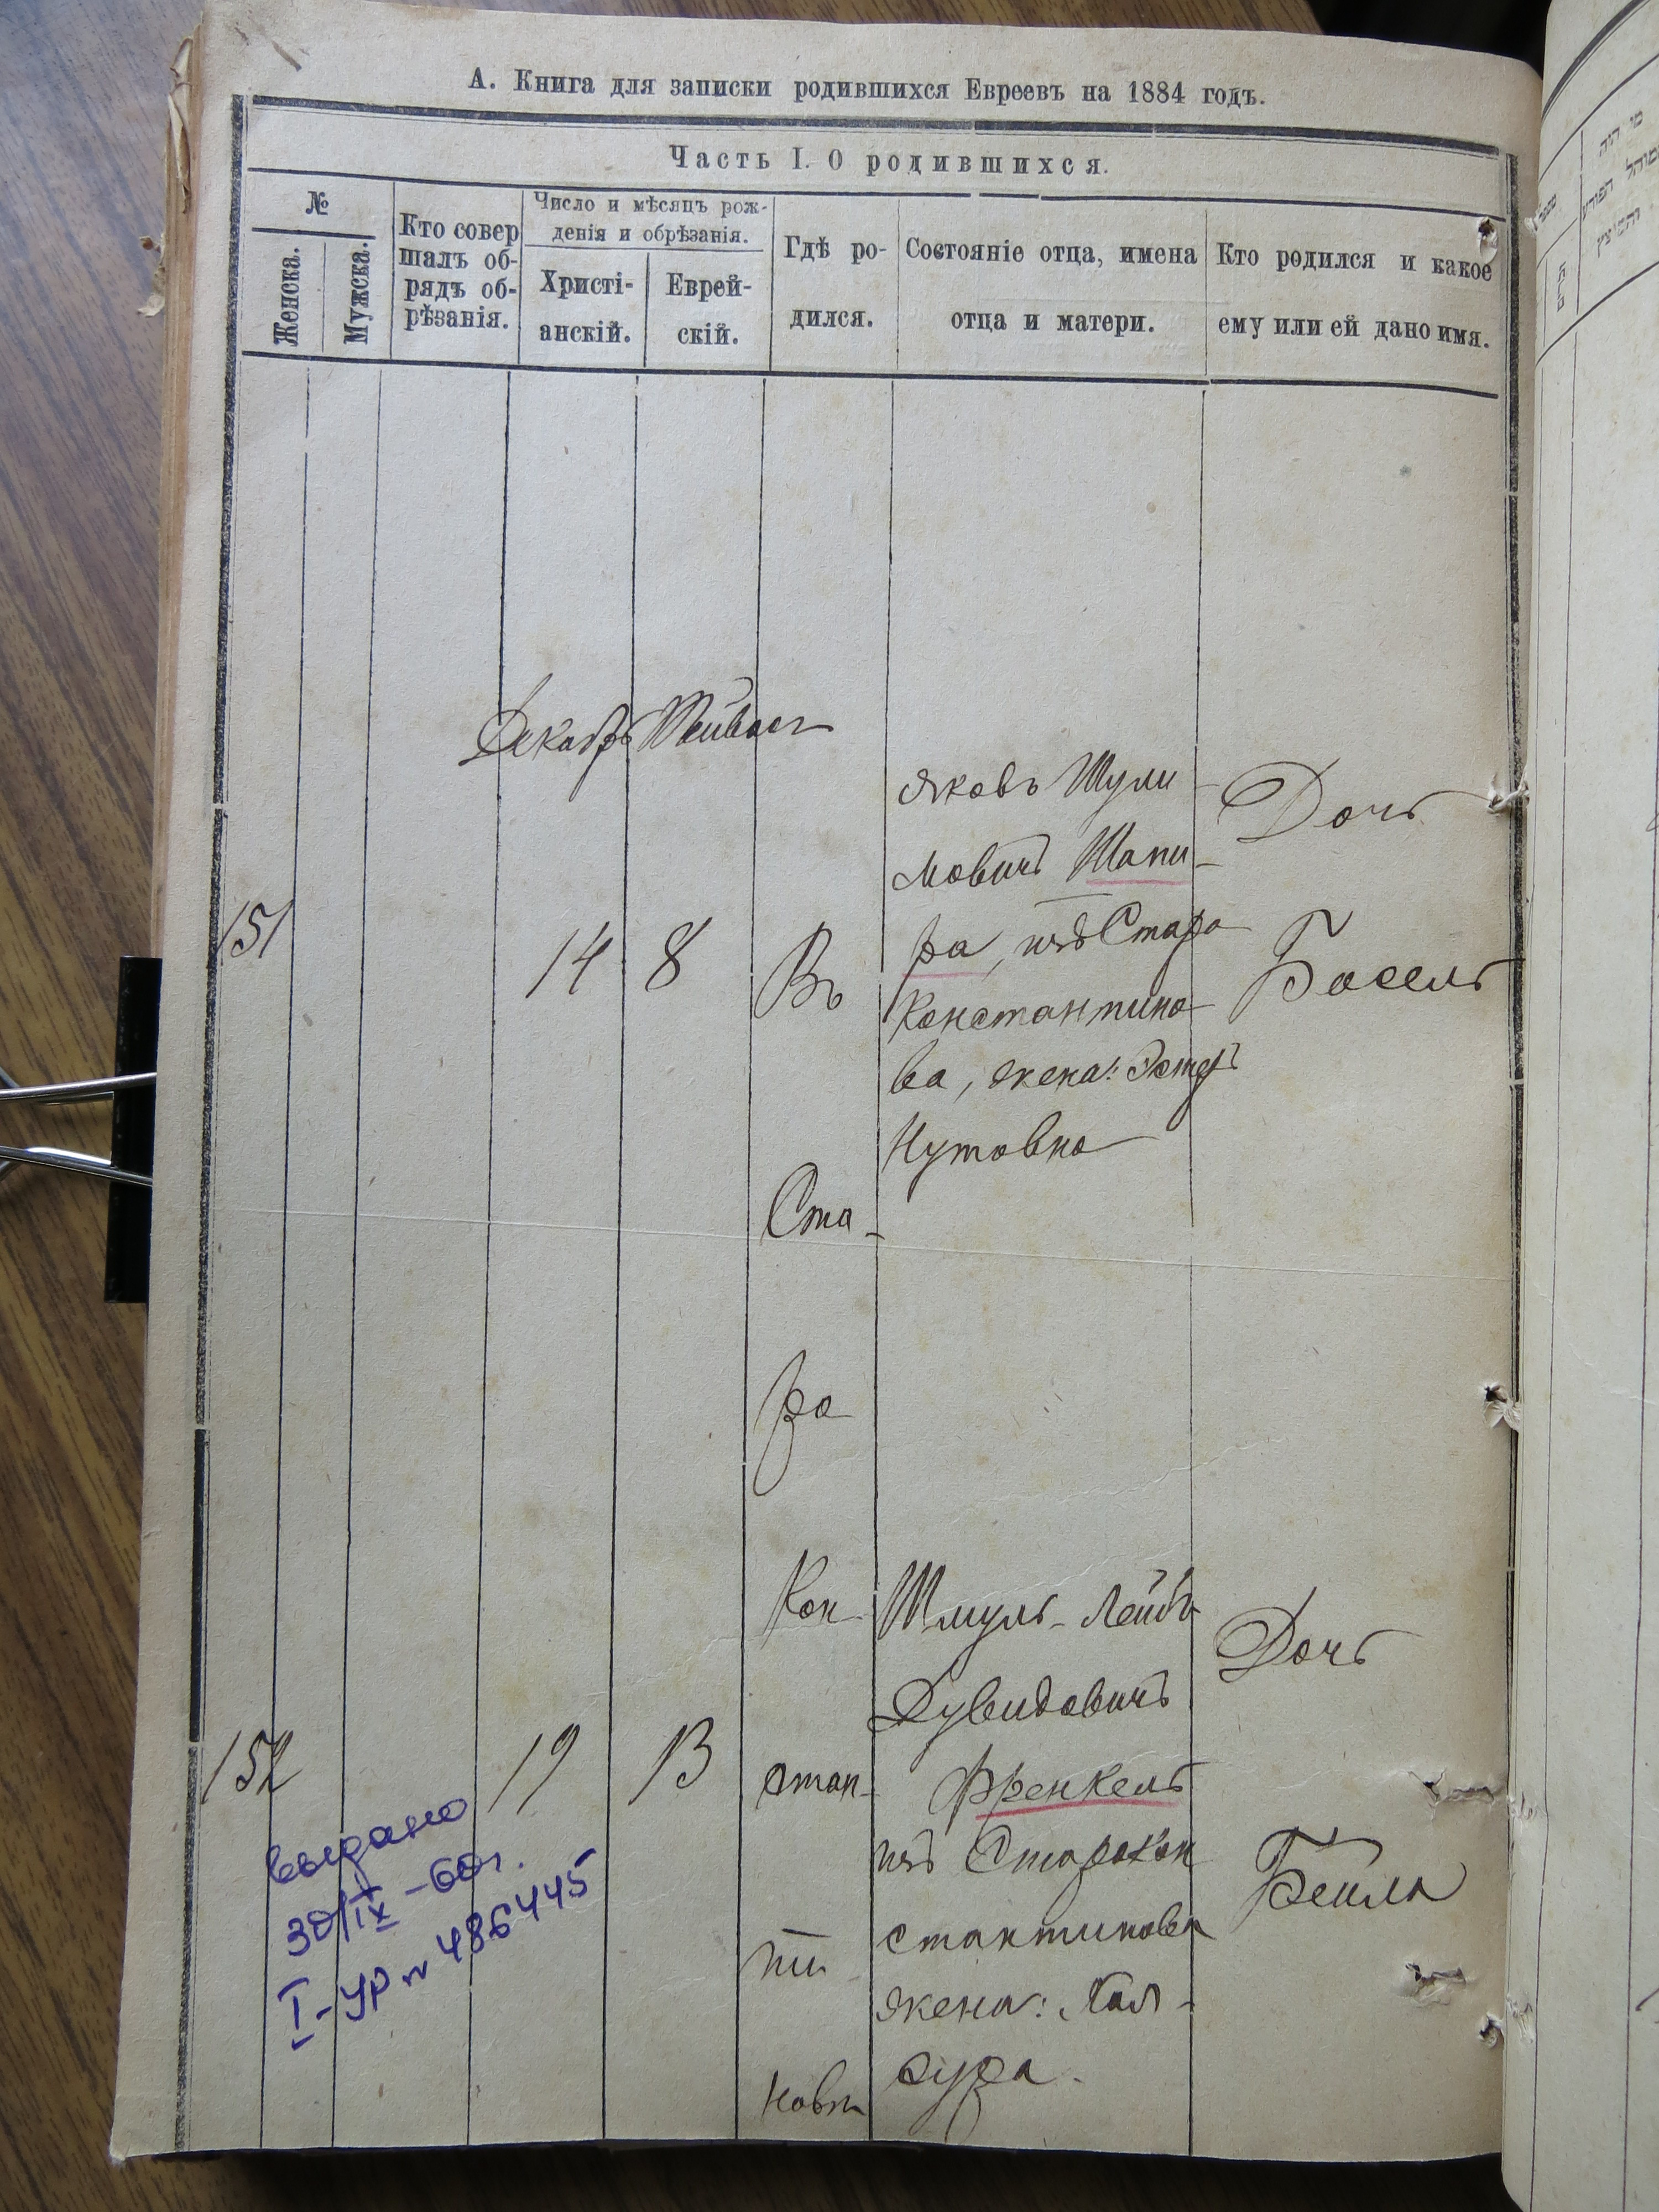 А. Книга для записки родившихся Евреевъ на 1884 годъ.
Часть I. О родившихся.
№
Женска.
Мужска.
Кто совер
шалъ об-
рядъ об-
рѣзанія.
Число и мѣсяцъ рож-
денія и обрѣзанія.
Христі-
анскій.
Еврей-
скій.
Гдѣ ро-
дился.
Состояніе отца, имена
отца и матери.
Кто родился и какое
ему или ей дано имя.
Декабрь Тейвесъ
151
14
8
Въ
Яковъ Шули
мовичъ Шапи-
ра, изъ Старо
константино-
ва, жена: Эстеръ
Нутовна
Дочь
Босель
Ста-
ро
Кон-
стан-
ти
новѣ
152
19
13
Шмуль-Лейбъ
Дувидовичъ
Френкель
изъ Старокон
стантинова
жена: Хая-
Сура.
Дочь
Бейла
выдано
30/IX-60г.
I-УР № 486445